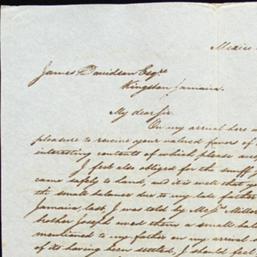 Mexico
James Davidson Esqre
Kingston Jamaica.
My dear Sir
On my arrival here
pleasure to receive your valued favors of
interesting contents of which please
I feel also obliged for the snuff
came safely to hand, and it is well that
the small balance due to my late father
Jamaica, last, I was told by Messrs Miller
brother Joseph owed them a small
mentioned to my father on my arrival
of its having been settled, I should feel